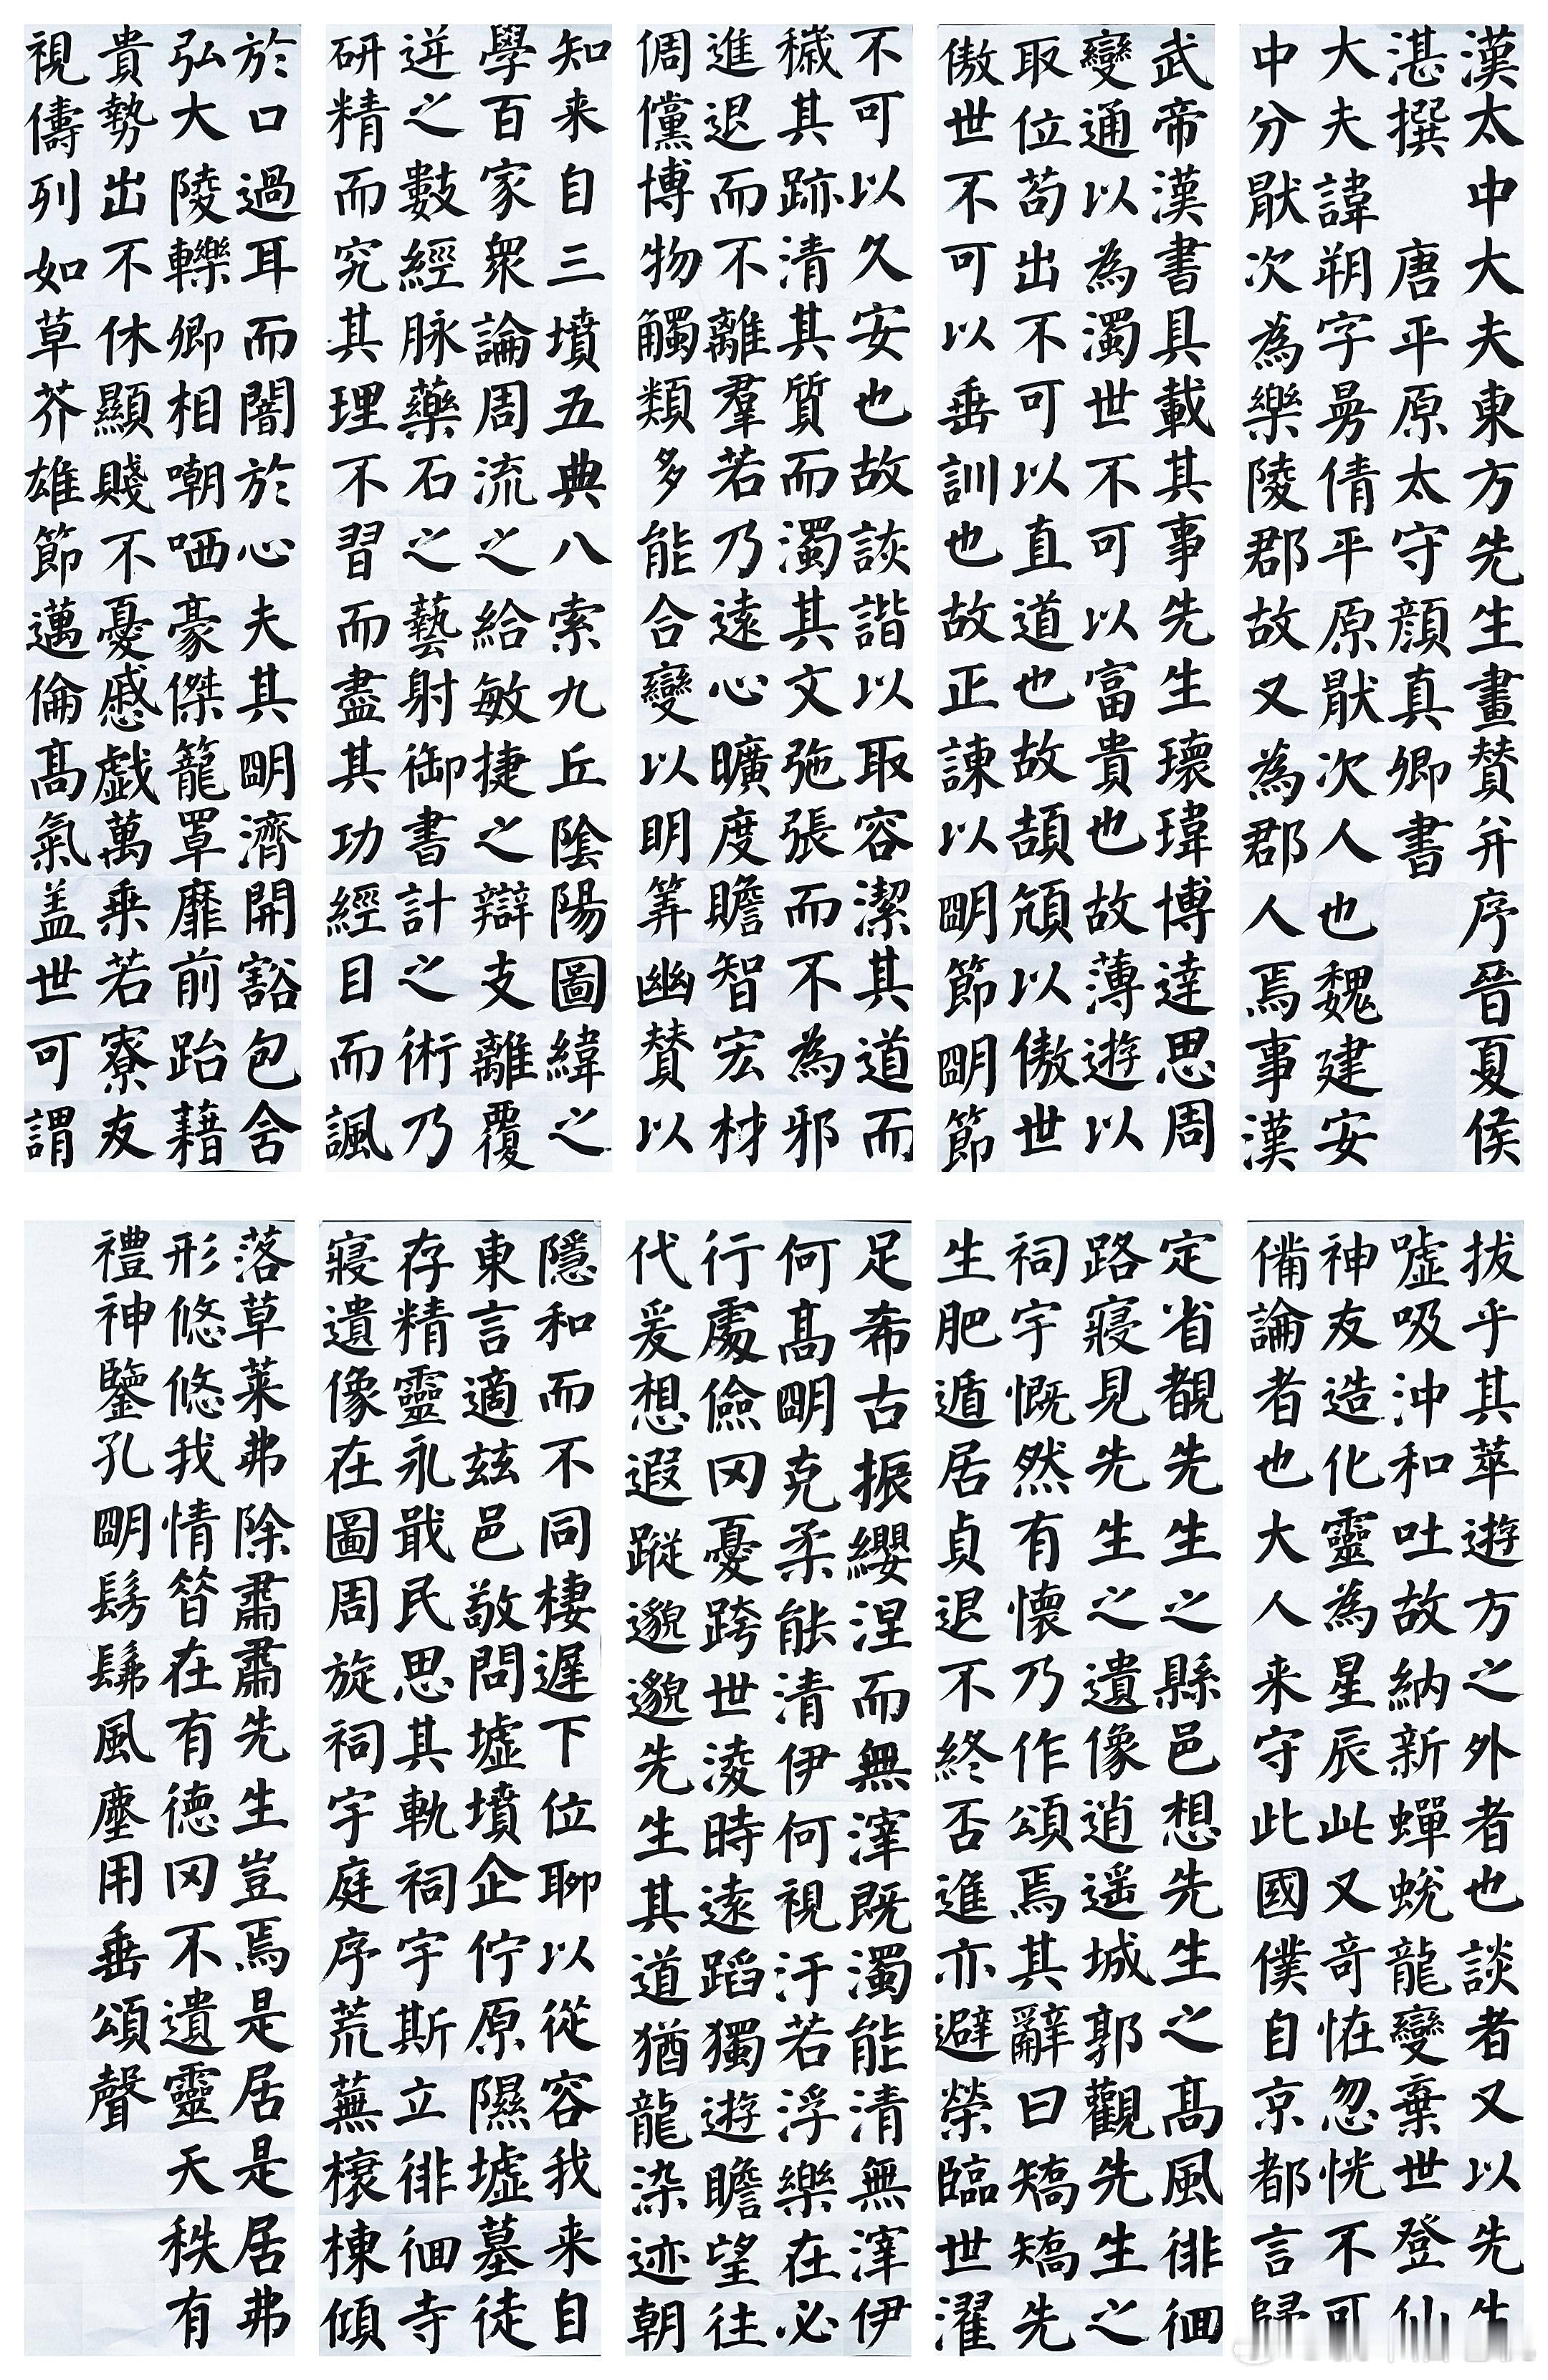 漢太中大夫東方先生畫賛并序晉夏侯
湛撰 唐平原太守顔真卿書
大夫諱朔字曼倩平原猒次人也魏建安
中分猒次為樂陵郡故又為郡人焉事漢
武帝漢書具載其事先生瓌瑋博達思周
變通以為濁世不可以富貴也故薄遊以
取位苟出不可以直道也故頡頏以傲世
傲世不可以垂訓也故正諫以明節明節
不可以久安也故詼諧以取容潔其道而
穢其跡清其質而濁其文弛張而不為邪
進退而不離羣若乃遠心曠度贍智宏材
倜儻博物觸類多能合變以明筭幽賛以
知来自三墳五典八索九丘陰陽圖緯之
學百家衆論周流之給敏捷之辯支離覆
逆之數經脉藥石之藝射御書計之術乃
研精而究其理不習而盡其功經目而諷
於口過耳而闇於心夫其明濟開豁包含
弘大陵轢卿相嘲哂豪傑籠罩靡前跆藉
貴勢出不休顯賤不憂慼戯萬乗若寮友
視儔列如草芥雄節邁倫高氣盖世可謂
拔乎其萃遊方之外者也談者又以先生
嘘吸沖和吐故納新蟬蛻龍變棄世登仙
神友造化靈為星辰此又奇怪忽恍不可
備論者也大人来守此國僕自京都言歸
定省覩先生之縣邑想先生之高風徘徊
路寢見先生之遺像逍遥城郭觀先生之
祠宇慨然有懷乃作頌焉其辭曰矯矯先
生肥遁居貞退不終否進亦避榮臨世濯
足希古振纓涅而無滓既濁能清無滓伊
何高明克柔能清伊何視汙若浮樂在必
行處儉罔憂跨世淩時遠蹈獨遊瞻望往
代爰想遐蹤邈邈先生其道猶龍染迹朝
隱和而不同棲遲下位聊以從容我来自
東言適兹邑敬問墟墳企佇原隰墟墓徒
存精靈永戢民思其軌祠宇斯立徘徊寺
寢遺像在圖周旋祠宇庭序荒蕪榱棟傾
落草萊弗除肅肅先生豈焉是居是居弗
形悠悠我情昔在有德罔不遺靈天秩有
禮神鑒孔明髣髴風塵用垂頌聲